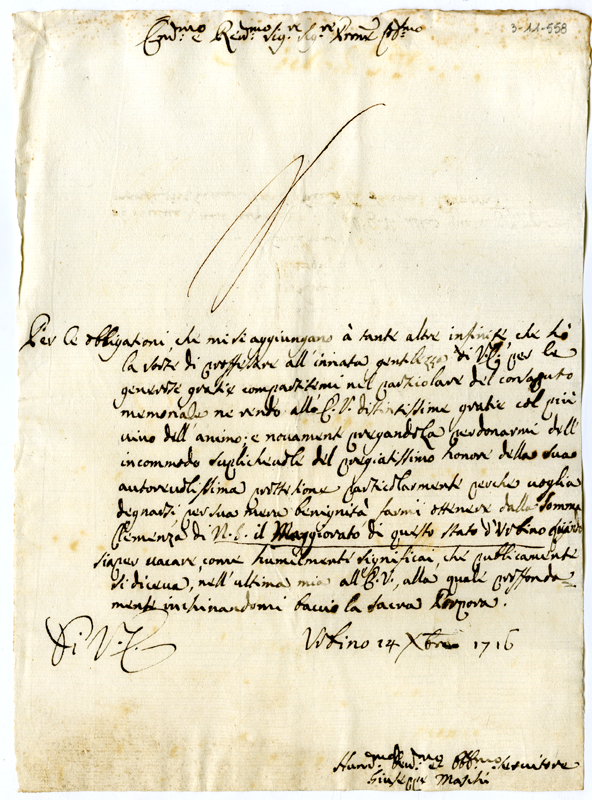 3-11-558
Em.mo e Rev.mo Sig.re Sig.re Prone Col.mo
Per le obligationi, che mi si aggiungano à tante altre infinite, che hò
la sorte di proffesare all'innata gentilezza di V.E. per le
generose gratie compartitemi nel particolare del consaputo
memoriale ne rendo all'E.V. distintissime gratie col più
vivo dell'animo: e novamente pregandola perdonarmi dell'
incommodo suplichevole del pregiatissimo honore della sua
autorevolissima protettione particolarmente perche voglia
degnarsi per sua mera benignità farmi ottenere dalla somma
Clemenza di N.S. il Maggiorato di questo stato d'Urbino quãdo
sia per vacare, come humilmente significai, che publicamente
si diceva, nell'ultima mia all'E.V., alla quale proffonda-
mente inchinandomi baccio la sacra Porpora.
Di V.E. Urbino 24 Xbre 1716
Hum.mo Dev.mo et Obb.mo servitore
Giuseppe Maschi